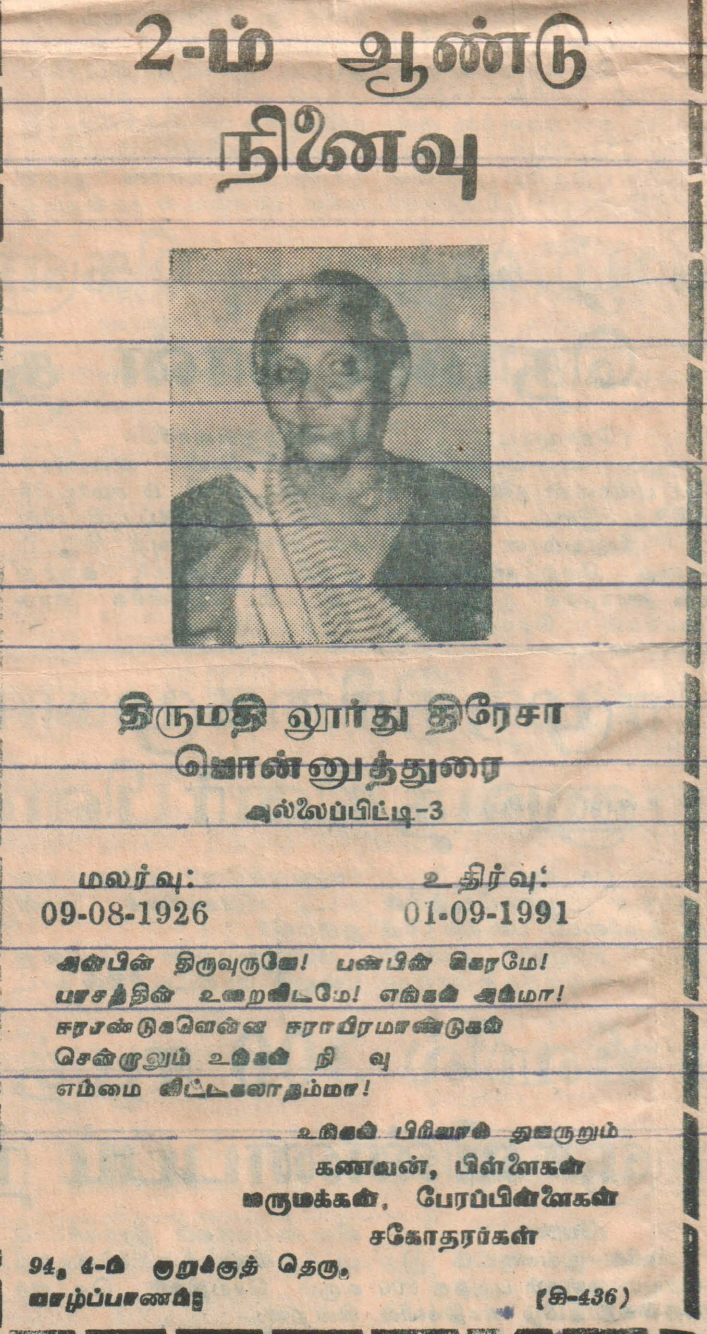 2-ம் ஆண்டு
நினைவு
திருமதி லூர்து திரேசா
பொன்னுத்துரை
அல்லைப்பிட்டி-3
மலர்வு: உதிர்வு:
09-08-1926 01-09-1991
அன்பின் திருவுருவே! பண்பின் சிகரமே!
பாசத்தின் உறைவிடமே! எங்கள் அம்மா!
ஈரரண்டுகளென்ன ஈராயிரமாண்டுகள்
சென்றாலும் உங்கள் நி வு
எம்மை விட்டகலாதம்மா!
உங்கள் பிரிவால் துயருறும்
கணவன், பிள்ளைகள்
மருமக்கள், பேரப்பிள்ளைகள்
சகோதரர்கள்
94, 4-ம் குறுக்குத் தெரு,
யாழ்ப்பாணம்.
(கி-436)